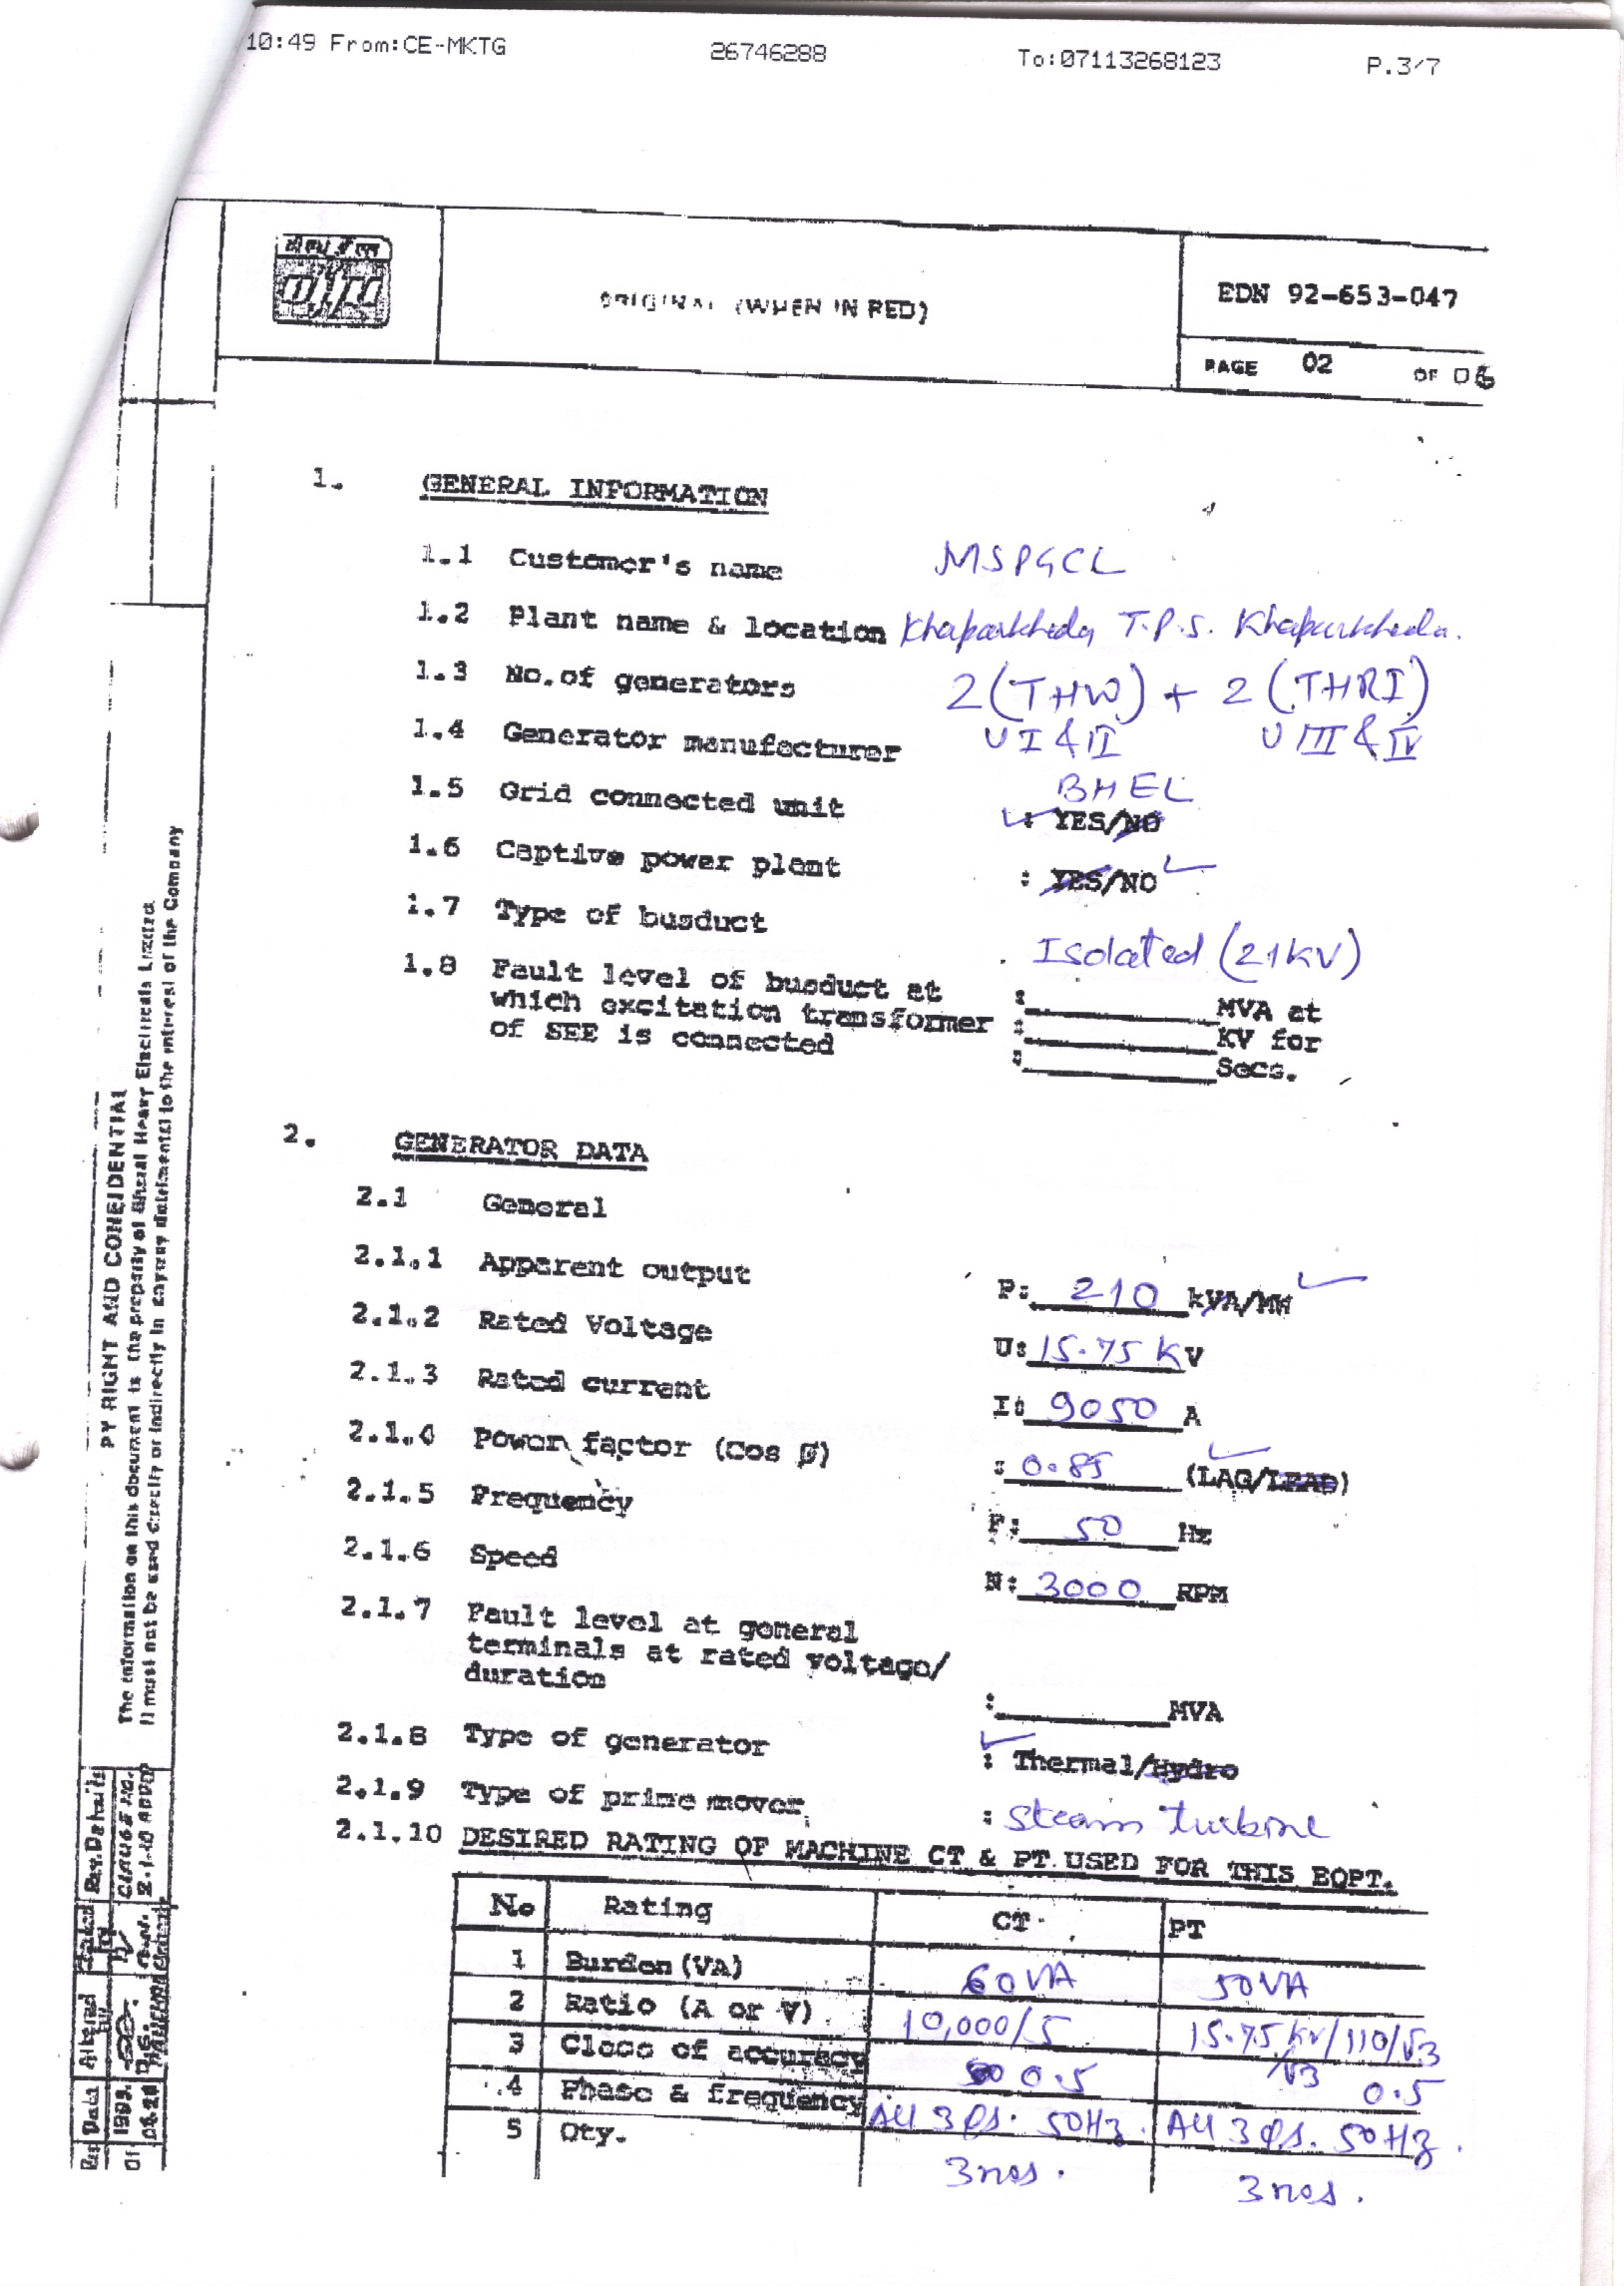 10:49 From:CE-MKTG 26746288 To:07113268123 P.3/7
ORIGINAL (WHEN IN RED)
EDN 92-653-047
PAGE 02 OF 06
1. GENERAL INFORMATION
1.1 Customer's name MSPGCL
1.2 Plant name & location Khaparkheda T.P.S. Khaparkheda.
1.3 No. of generators 2 (THW) + 2 (THRI)
U I & II U III & IV
1.4 Generator manufacturer BHEL
1.5 Grid connected unit : YES/NO
1.6 Captive power plant : YES/NO
1.7 Type of busduct Isolated (21KV)
1.8 Fault level of busduct at
which excitation transformer
of SEE is connected
: MVA at
: KV for
: Secs.
2. GENERATOR DATA
2.1 General
2.1.1 Apparent output P: 210 kVA/MW
2.1.2 Rated Voltage U: 15.75 KV
2.1.3 Rated current I: 9050 A
2.1.4 Power factor (Cos Ø) : 0.85 (LAG/LEAD)
2.1.5 Frequency F: 50 Hz
2.1.6 Speed N: 3000 RPM
2.1.7 Fault level at general
terminals at rated voltage/
duration : MVA
2.1.8 Type of generator : Thermal/Hydro
2.1.9 Type of prime mover : Steam turbine
2.1.10 DESIRED RATING OF MACHINE CT & PT USED FOR THIS EQPT.
No Rating CT PT
1 Burden (VA) 60VA 50VA
2 Ratio (A or V) 10,000/5 15.75 KV/110/√3
/√3
3 Class of accuracy 0.5 0.5
4 Phase & frequency All 3 φs. 50Hz. All 3 φs. 50Hz.
5 Qty. 3nos. 3nos.
PY RIGHT AND CONFIDENTIAL
The information on this document is the property of Bharat Heavy Electricals Limited.
It must not be used directly or indirectly in anyway detrimental to the interest of the Company
Rev. Details
CLAUSE NO.
2.1.10 ADDED
Altered
Date